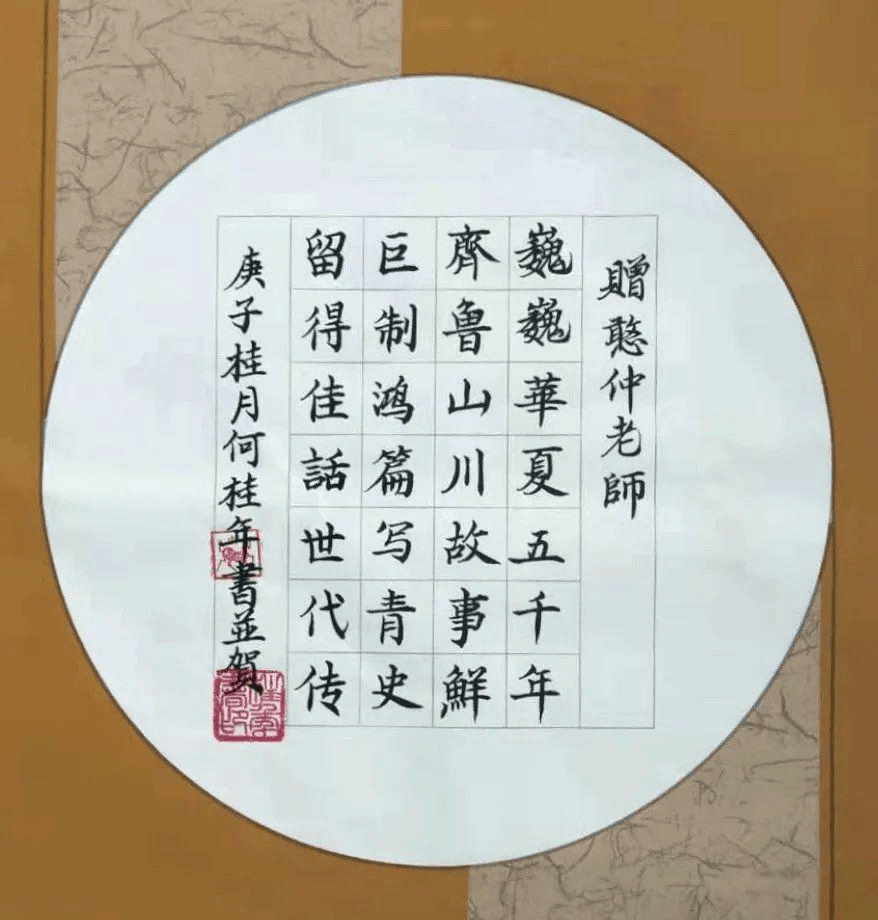 贈憨仲老師
巍巍華夏五千年
齊魯山川故事鮮
巨制鸿篇写青史
留得佳話世代传
庚子桂月何桂年書並賀